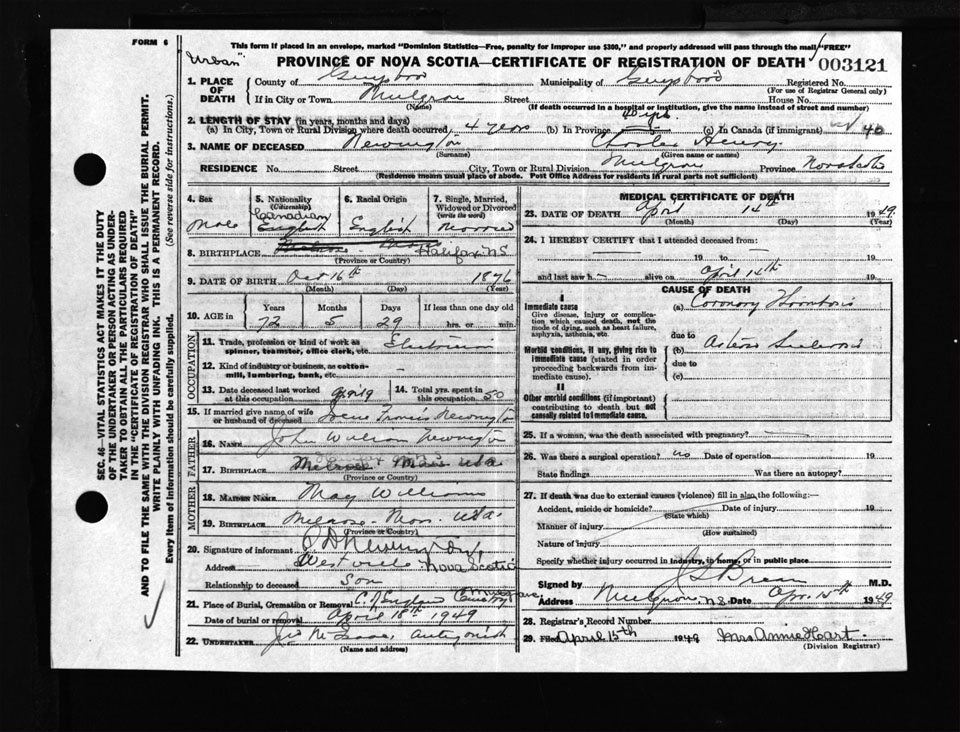 FORM 6
This form if placed in an envelope, marked "Dominion Statistics—Free, penalty for improper use $300," and properly addressed will pass through the mail "FREE"
"Urban"
PROVINCE OF NOVA SCOTIA—CERTIFICATE OF REGISTRATION OF DEATH
003121
1. PLACE OF DEATH
County of Guysboro Municipality of Guysboro Registered No.
(For use of Registrar General only)
If in City or Town Mulgrave Street House No.
(Name) (If death occurred in a hospital or institution, give the name instead of street and number)
2. LENGTH OF STAY (in years, months and days)
(a) In City, Town or Rural Division where death occurred 4 years (b) In Province 40 yrs. (c) In Canada (if immigrant) 40
3. NAME OF DECEASED Newington Charles Henry
(Surname) (Given name or names)
RESIDENCE No. Street City, Town or Rural Division Mulgrave Province Nova Scotia
(Residence means usual place of abode. Post Office Address for residents in rural parts not sufficient)
4. Sex
Male
5. Nationality (Citizenship)
Canadian
English
6. Racial Origin
English
7. Single, Married, Widowed or Divorced (write the word)
Married
8. BIRTHPLACE Halifax N.S
(Province or Country)
9. DATE OF BIRTH Oct 16th 1876
(Month) (Day) (Year)
10. AGE in
Years Months Days If less than one day old
72 5 29 hrs. or min.
OCCUPATION
11. Trade, profession or kind of work as spinner, teamster, office clerk, etc. Electrician
12. Kind of industry or business, as cotton-mill, lumbering, bank, etc.
13. Date deceased last worked at this occupation
14. Total yrs. spent in this occupation 50
15. If married give name of wife or husband of deceased Newington
FATHER
16. NAME John William Newington
17. BIRTHPLACE Melrose Mass USA
(Province or Country)
MOTHER
18. MAIDEN NAME May Williams
19. BIRTHPLACE Melrose - Mass. USA.
(Province or Country)
20. Signature of informant Newington
Address Westville Nova Scotia
Relationship to deceased Son
21. Place of Burial, Cremation or Removal C. of England Cemetery Mulgrave
Date of burial or removal April 18th 1949
22. UNDERTAKER Antigonish
(Name and address)
MEDICAL CERTIFICATE OF DEATH
23. DATE OF DEATH April 14th 1949
(Month) (Day) (Year)
24. I HEREBY CERTIFY that I attended deceased from:
19 to 19
and last saw h alive on April 14th 19
CAUSE OF DEATH
I
Immediate cause
Give disease, injury or complication which caused death, not the mode of dying, such as heart failure, asphyxia, asthenia, etc.
(a) Coronary Thrombosis
due to
Morbid conditions, if any, giving rise to immediate cause (stated in order proceeding backwards from immediate cause).
(b) Arterio Sclerosis
due to
(c)
II
Other morbid conditions (if important) contributing to death but not causally related to immediate cause.
25. If a woman, was the death associated with pregnancy?
26. Was there a surgical operation? no Date of operation 19
State findings Was there an autopsy?
27. If death was due to external causes (violence) fill in also the following:—
Accident, suicide or homicide? Date of injury 19
(State which)
Manner of injury
(How sustained)
Nature of injury
Specify whether injury occurred in industry, in home, or in public place
Signed by M.D.
Address Mulgrave, N.S. Date Apr. 15th 1949
28. Registrar's Record Number
29. Filed April 15th 1949 Mrs Annie Hart.
(Division Registrar)
SEC. 46—VITAL STATISTICS ACT MAKES IT THE DUTY
OF THE UNDERTAKER OR PERSON ACTING AS UNDER-
TAKER TO OBTAIN ALL THE PARTICULARS REQUIRED
IN THE "CERTIFICATE OF REGISTRATION OF DEATH"
AND TO FILE THE SAME WITH THE DIVISION REGISTRAR WHO SHALL ISSUE THE BURIAL PERMIT.
WRITE PLAINLY WITH UNFADING INK. THIS IS A PERMANENT RECORD.
Every item of information should be carefully supplied. (See reverse side for instructions.)